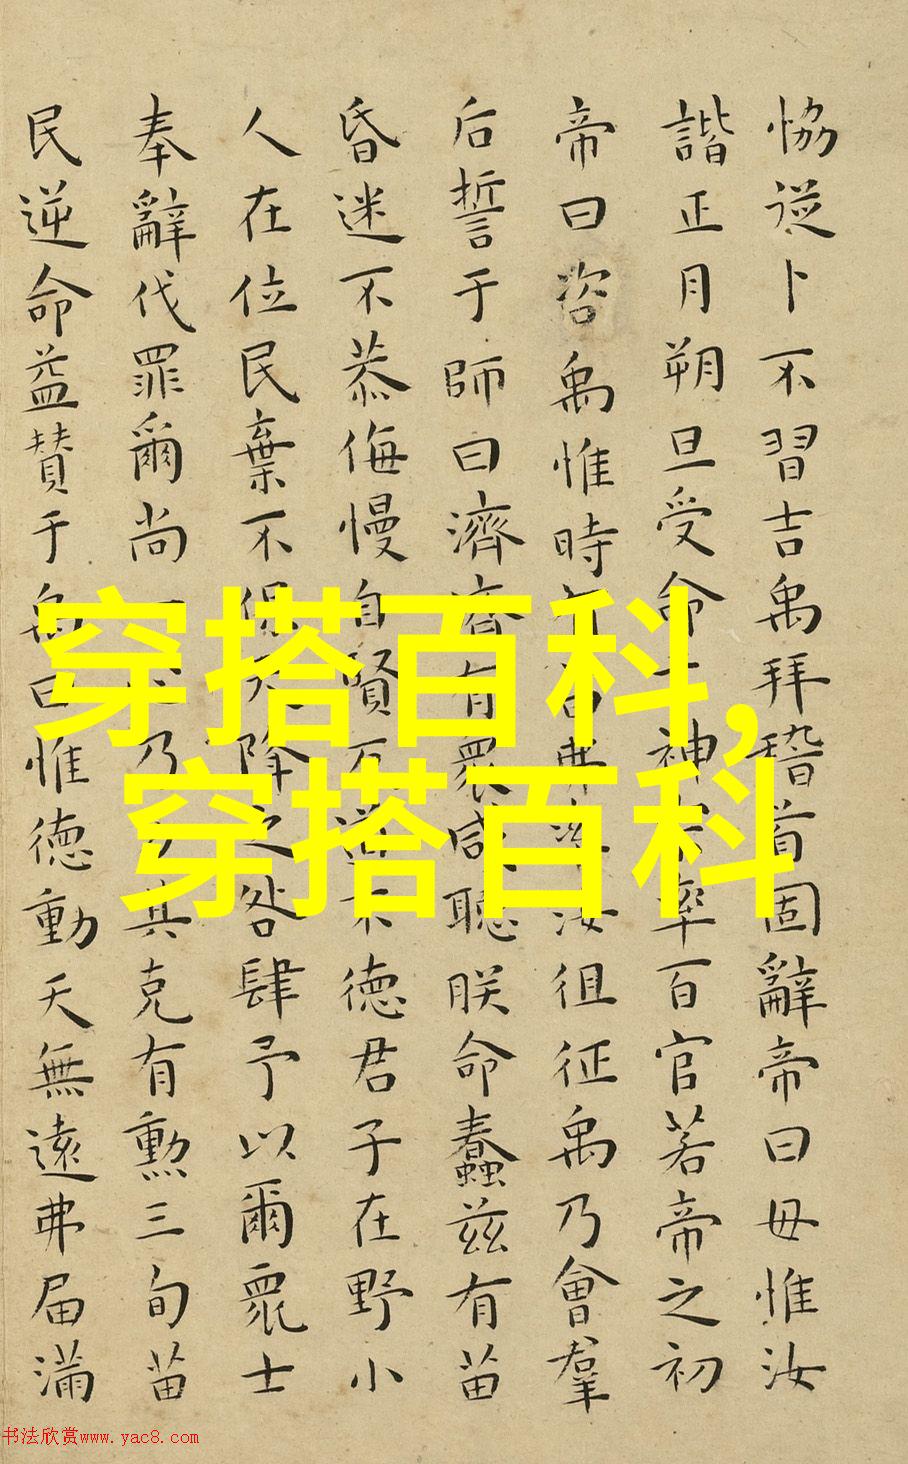 恊從卜不習吉禹拜稽首固辭帝曰毋惟汝
諧正月朔旦受命神率百官若帝之初
帝曰咨禹惟時汝徂征禹乃會羣
后誓于師曰濟濟有衆咸聽朕命蠢茲有苗
昏迷不恭侮慢自賢反道不德君子在野小
人在位民棄不保天降之咎肆予以爾衆士
奉辭伐罪爾尚乃其克有勲三旬苗
民逆命益贊于禹曰惟德動天無遠弗届滿
穿搭百科,
穿搭百科
书法欣赏www.yac8.com